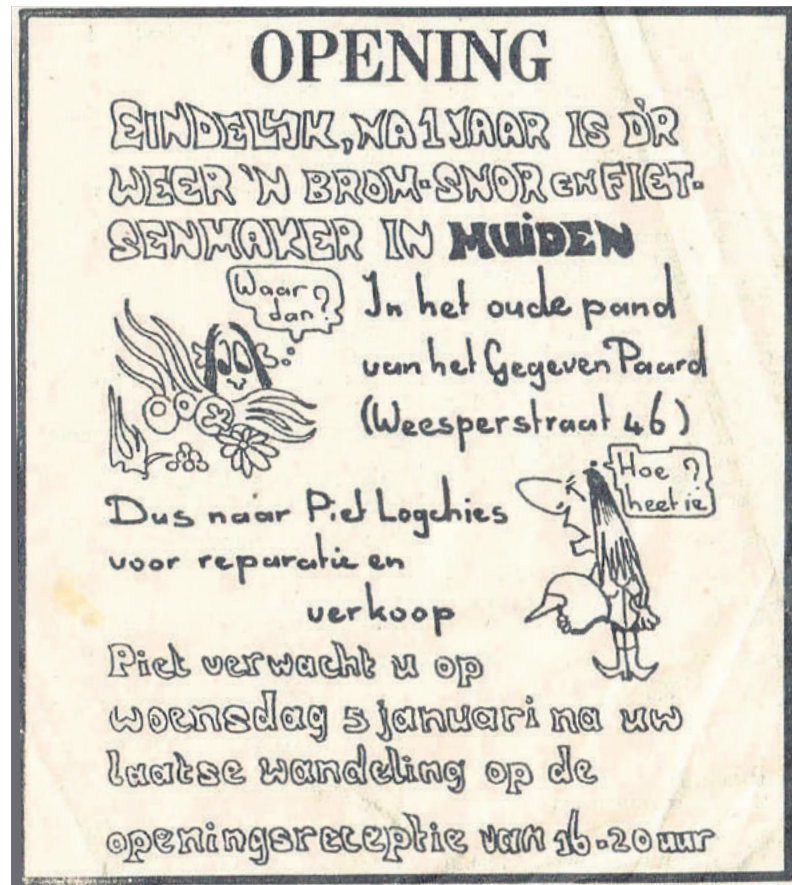 OPENING
EINDELIJK, NA 1 JAAR IS D'R
WEER 'N BROM-SNOR EN FIET-
SENMAKER IN MUIDEN
Waar
dan?
In het oude pand
van het Gegeven Paard
(Weesperstraat 46)
Hoe ?
heet ie
Dus naar Piet Logchies
voor reparatie en
verkoop
Piet verwacht u op
woensdag 5 januari na uw
laatse wandeling op de
openingsreceptie van 16-20 uur